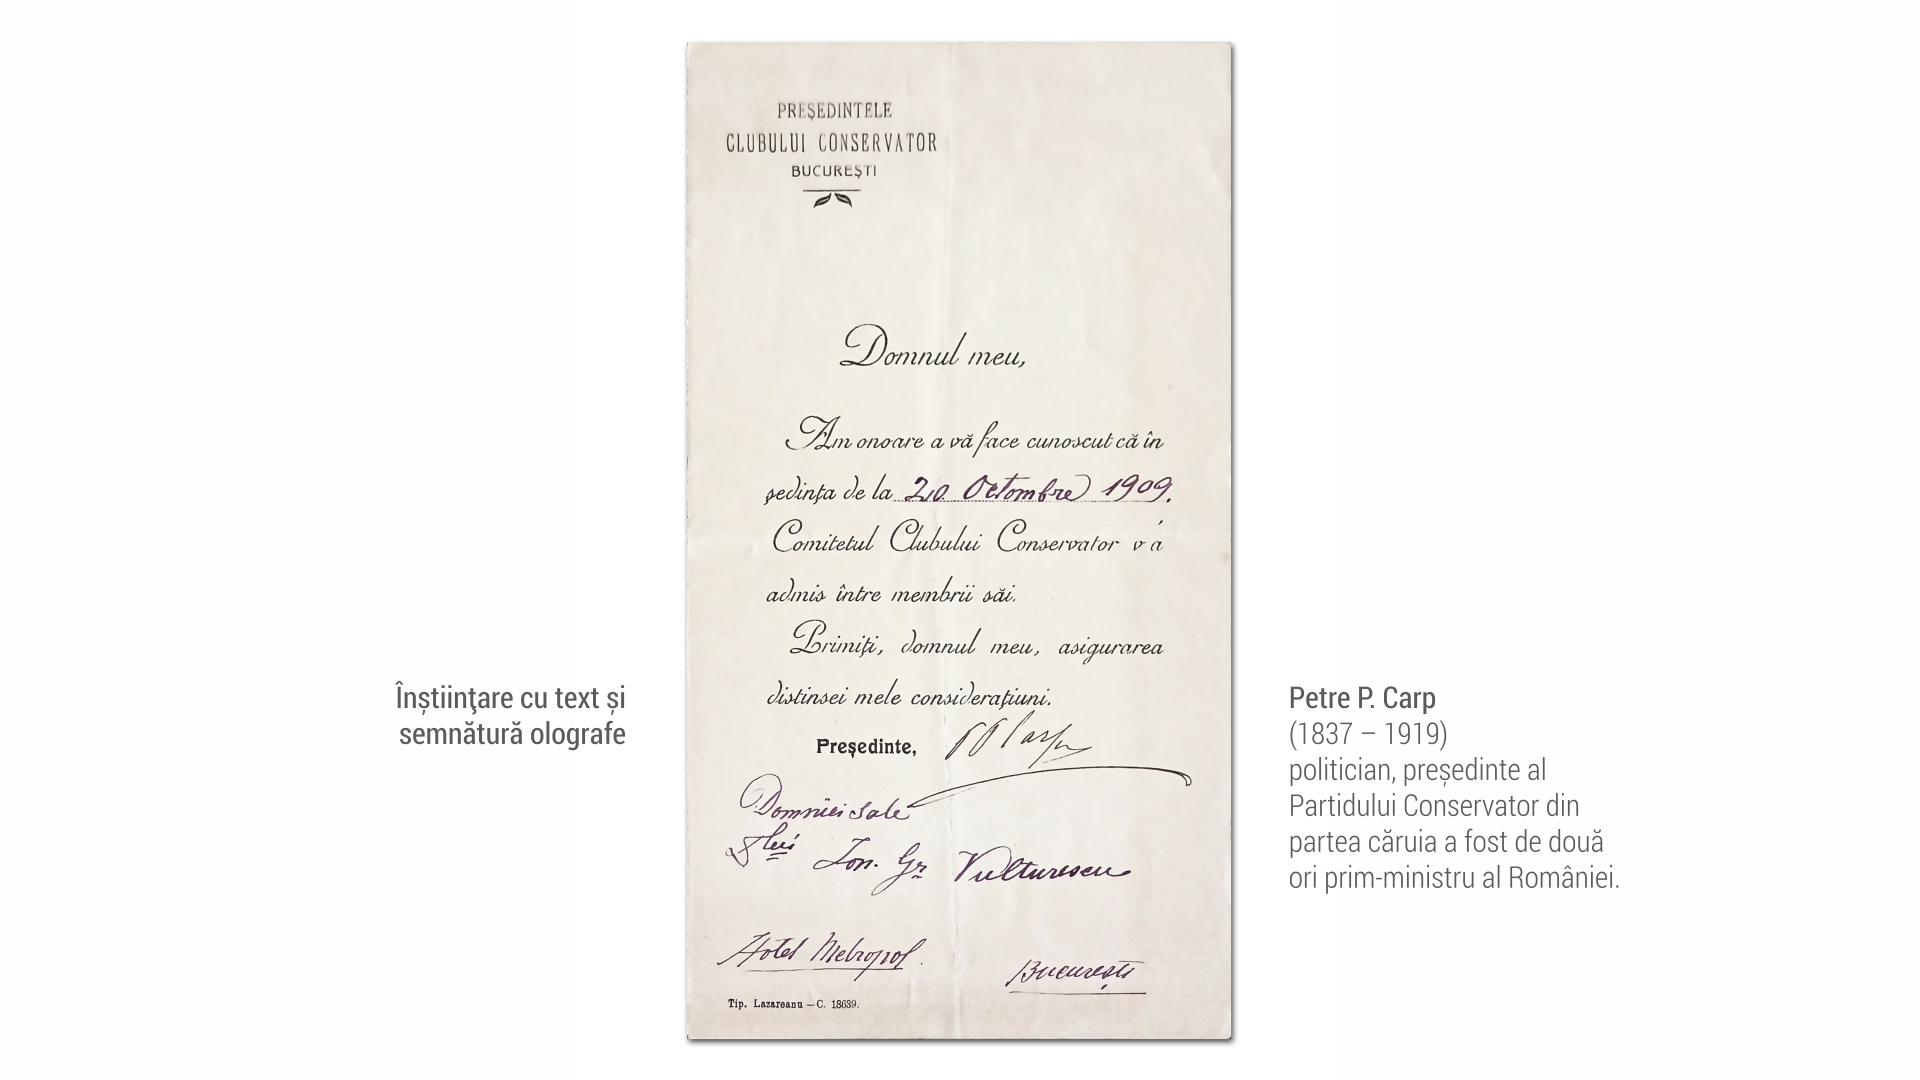 PREŞEDINTELE
CLUBULUI CONSERVATOR
BUCUREŞTI
Domnul meu,
Am onoare a vă face cunoscut că în
şedinţa de la 20 Octombre 1909.
Comitetul Clubului Conservator v'a
admis între membrii săi.
Primiţi, domnul meu, asigurarea
distinsei mele consideraţiuni.
Preşedinte, PP Carp
Domniei sale
D lui Ion. Gr Vulturescu
Hotel Metropol.
Bucureşti
Tip. Lazareanu — C. 18639.
Înștiinţare cu text și
semnătură olografe
Petre P. Carp
(1837 – 1919)
politician, președinte al
Partidului Conservator din
partea căruia a fost de două
ori prim-ministru al României.